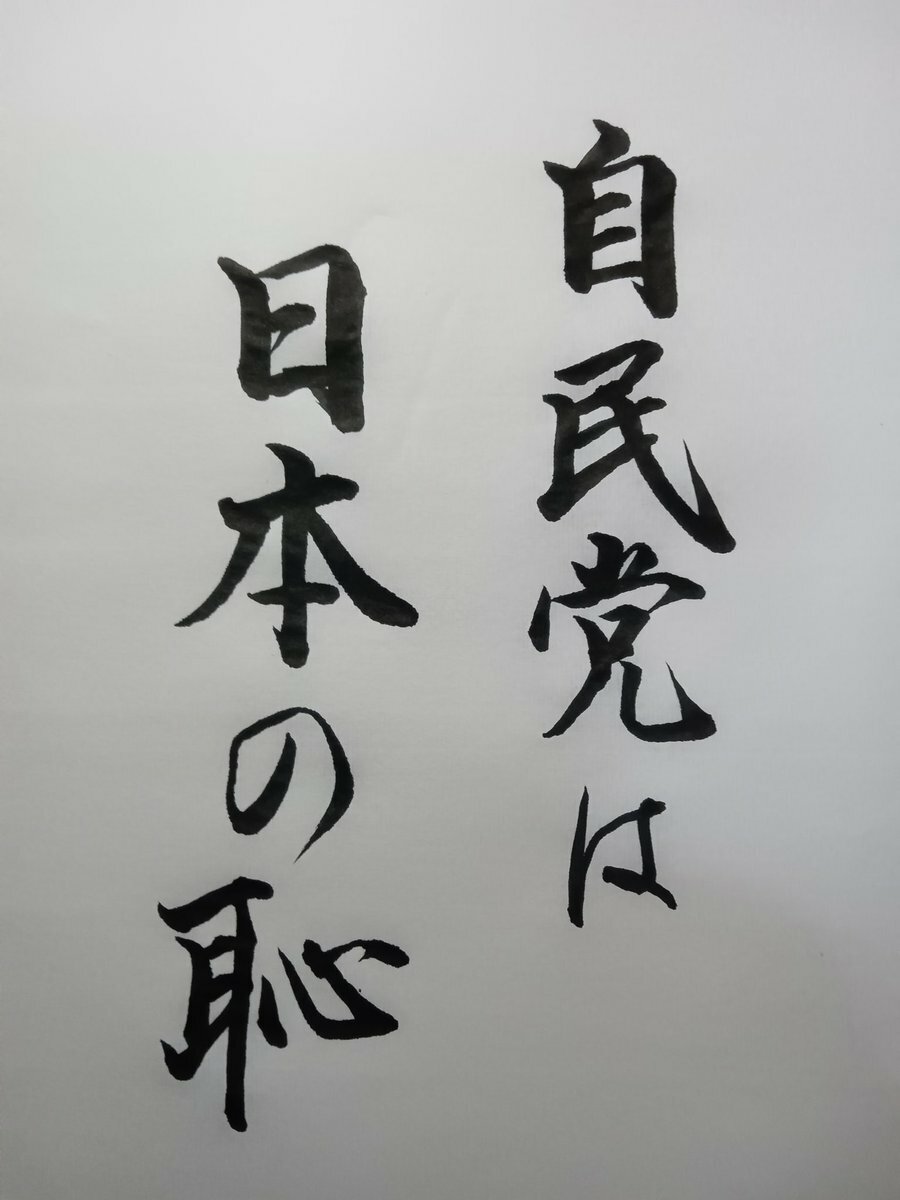 自民党は
日本の恥